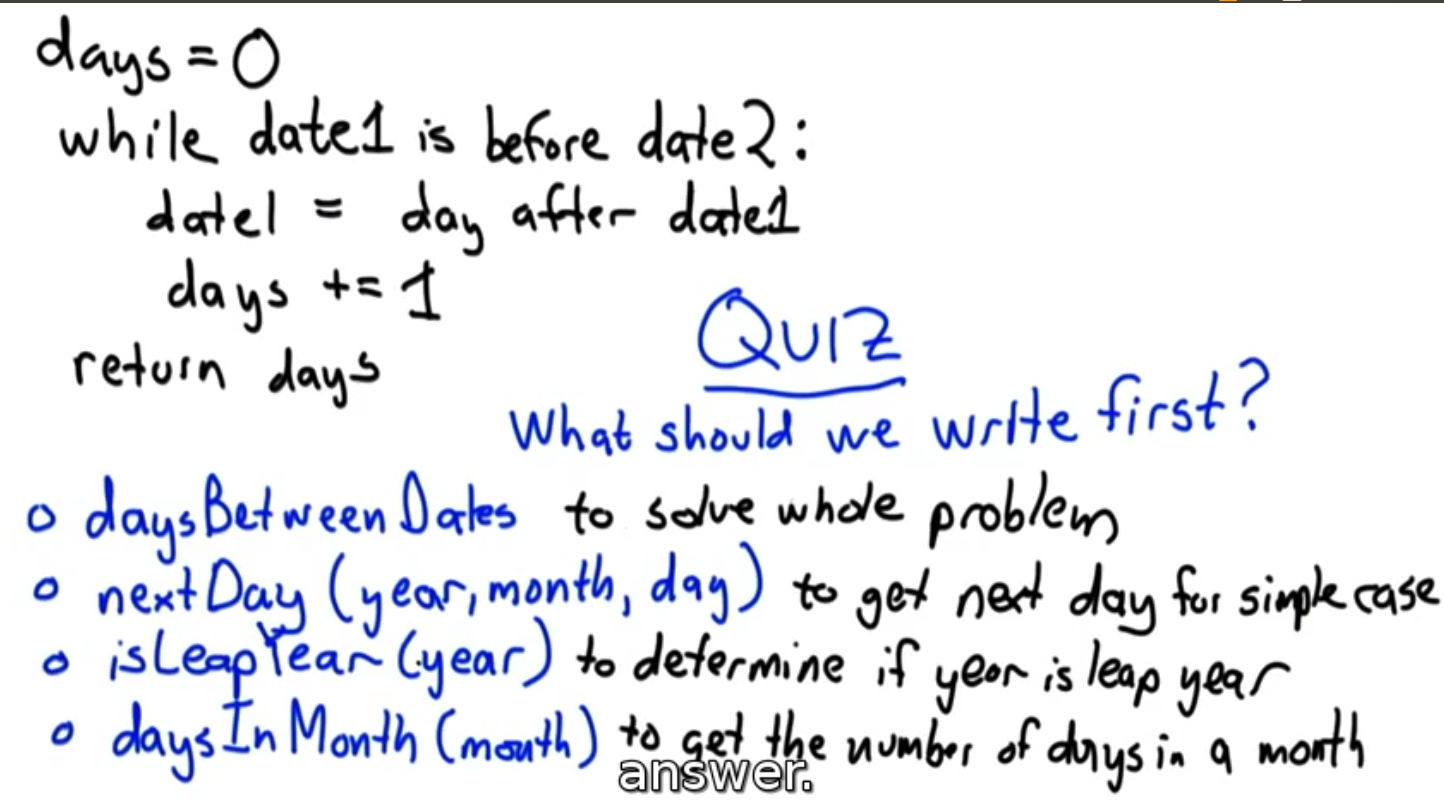 days = 0
while date1 is before date2:
date1 = day after date1
days += 1
return days
QUIZ
What should we write first?
o daysBetweenDates to solve whole problem
o nextDay (year, month, day) to get next day for simple case
o isLeapYear (year) to determine if year is leap year
o daysInMonth (month) to get the number of days in a month
answer.